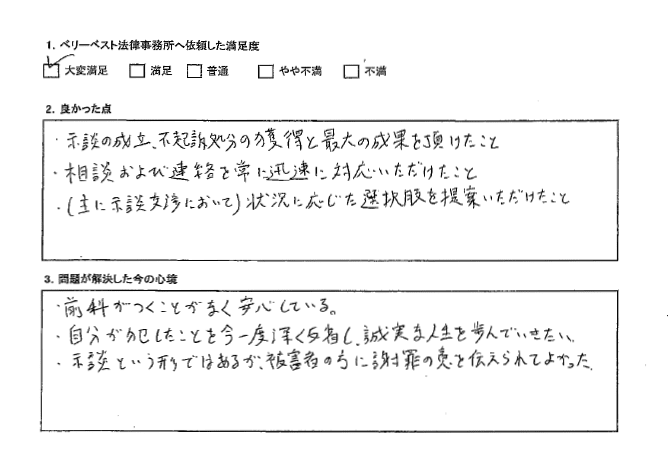 1. ベリーベスト法律事務所へ依頼した満足度
大変満足 満足 普通 やや不満 不満
2. 良かった点
・示談の成立、不起訴処分の獲得と最大の成果を頂けたこと
・相談および連絡を常に迅速に対応いただけたこと
・(主に示談交渉において)状況に応じた選択肢を提案いただけたこと
3. 問題が解決した今の心境
・前科がつくことがなく安心している。
・自分が犯したことを今一度深く反省し、誠実な人生を歩んでいきたい。
・示談という形ではあるが、被害者の方に謝罪の意を伝えられてよかった。